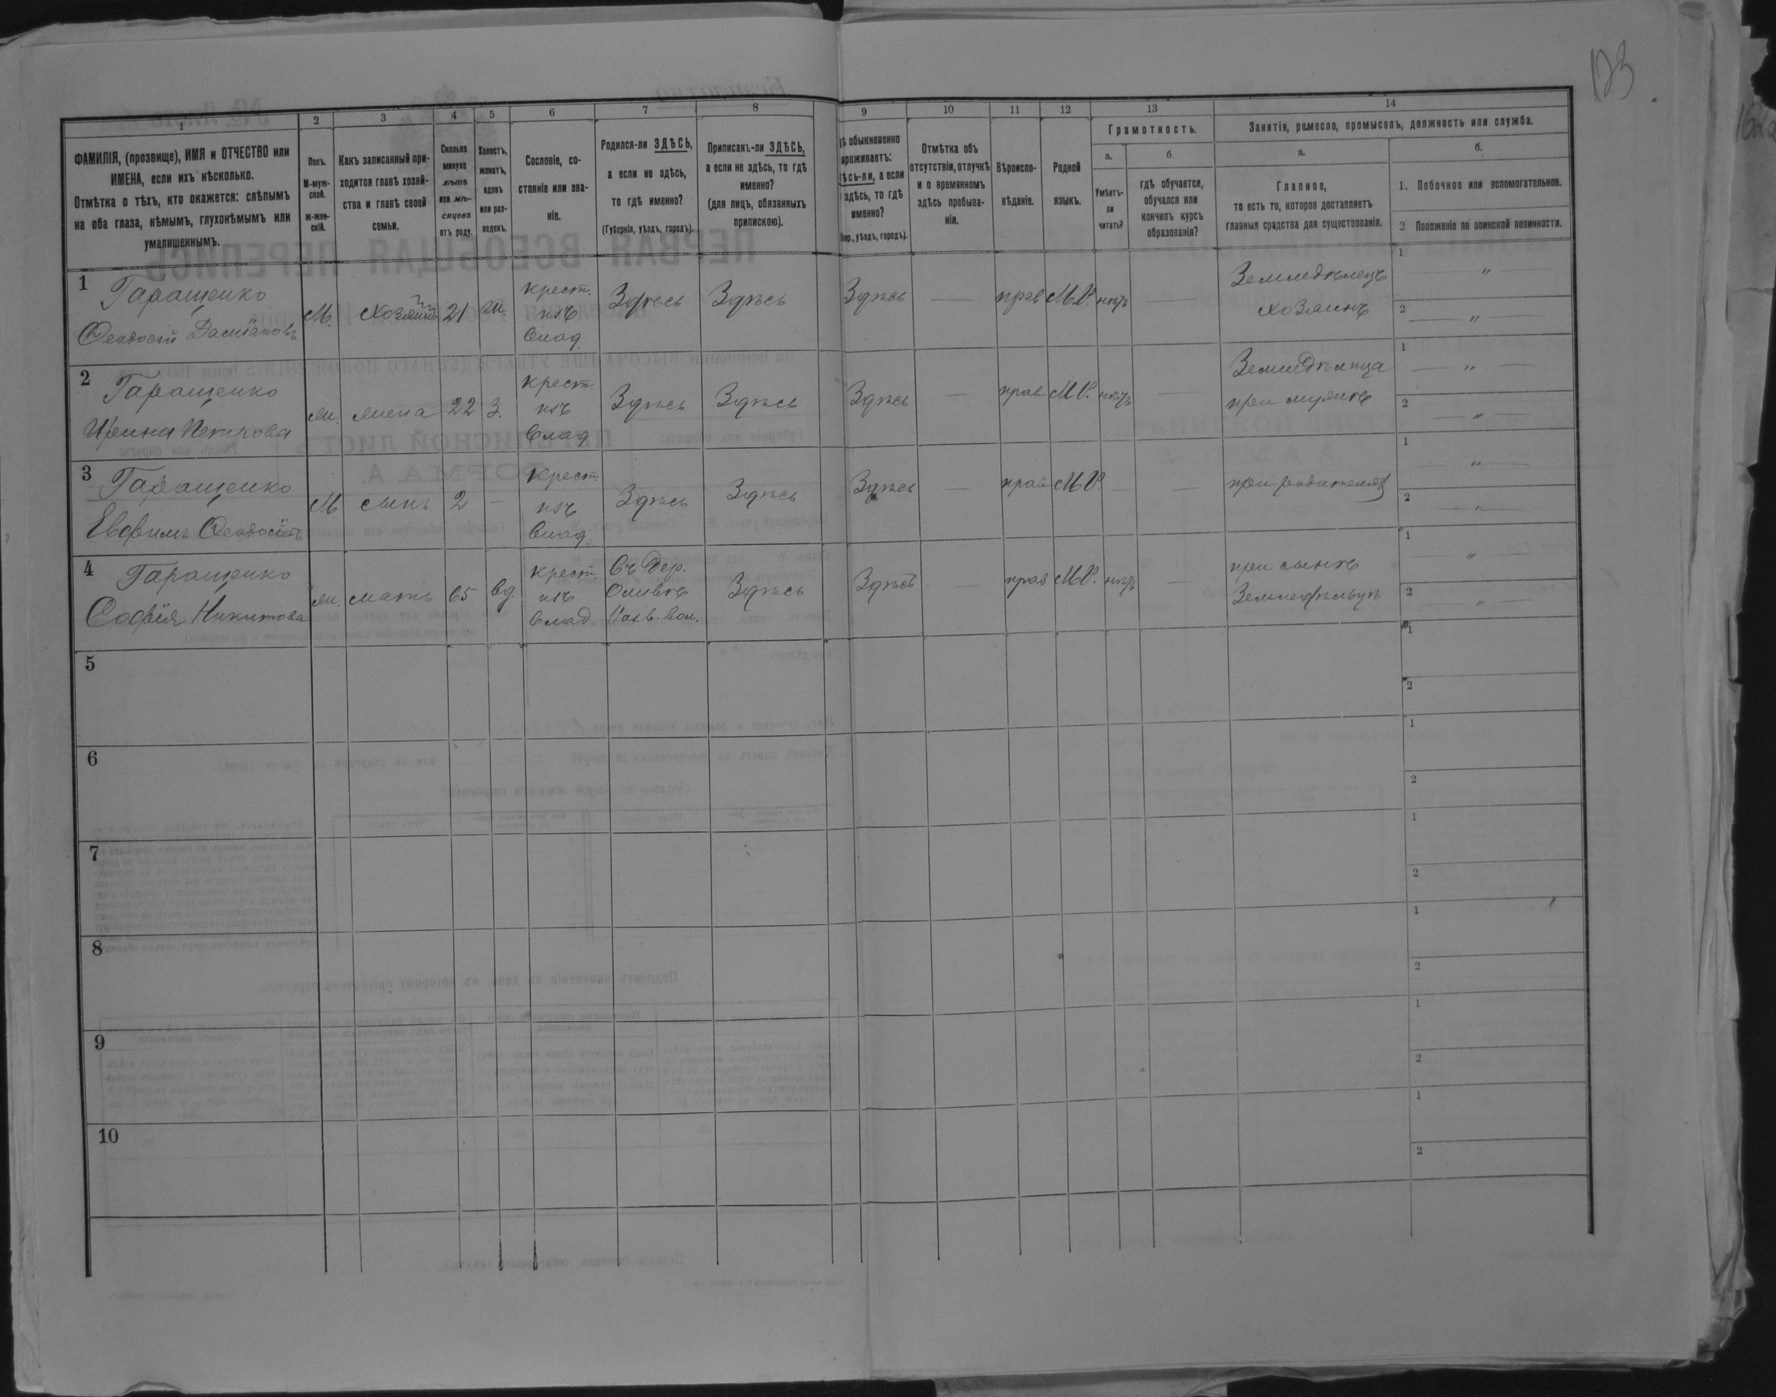 123
1
2
3
4
5
6
7
8
9
10
11
12
13
14
ФАМИЛІЯ, (прозвище), ИМЯ и ОТЧЕСТВО или ИМЕНА, если ихъ нѣсколько.
Отмѣтка о тѣхъ, кто окажется: слѣпымъ на оба глаза, нѣмымъ, глухонѣмымъ или умалишеннымъ.
Полъ.
М-мужской.
Ж-женскій.
Какъ записанный приходится главѣ хозяйства и главѣ своей семьи.
Сколько минуло лѣтъ или мѣсяцевъ отъ роду.
Холостъ, женатъ, вдовъ или разведенъ.
Сословіе, состояніе или званіе.
Родился-ли ЗДѢСЬ, а если не здѣсь, то гдѣ именно?
(Губернія, уѣздъ, городъ).
Приписанъ-ли ЗДѢСЬ, а если не здѣсь, то гдѣ именно?
(для лицъ, обязанныхъ припискою).
обыкновенно проживаетъ:
здѣсь-ли, а если здѣсь, то гдѣ именно?
уѣздъ, городъ).
Отмѣтка объ отсутствіи, отлучкѣ и о временномъ здѣсь пребываніи.
Вѣроисповѣданіе.
Родной языкъ.
Грамотность.
а.
Умѣетъ-ли читать?
б.
гдѣ обучается, обучался или кончилъ курсъ образованія?
Занятіе, ремесло, промыселъ, должность или служба.
а.
Главное,
то есть то, которое доставляетъ главныя средства для существованія.
б.
1. Побочное или вспомогательное.
2 Положеніе по воинской повинности.
1 Гаращенко Феодосій Даміановъ М. Хозяинъ 21 ж. крест. изъ влад. Здѣсь Здѣсь Здѣсь — прав М.Р. нѣтъ — Земледѣлецъ хозяинъ
1 — " —
2 — " —
2 Гаращенко Ирина Петрова ж. жена 22 З. крест. изъ влад. Здѣсь Здѣсь Здѣсь — прав М.Р. нѣтъ — Земледѣлица при мужѣ
1 — " —
2 — " —
3 Гаращенко Евфимъ Феодосіевъ М сынъ 2 — крест. изъ влад. Здѣсь Здѣсь Здѣсь прав М.Р. — — при родителяхъ
1 — " —
2 — " —
4 Гаращенко Софія Никитова ж. мать 65 вд. крест. изъ влад. Въ дер. вол. Здѣсь Здѣсь — прав М.Р. нѣтъ — при сынѣ
1 — " —
2 — " —
5
1
2
6
1
2
7
1
2
8
1
2
9
1
2
10
1
2